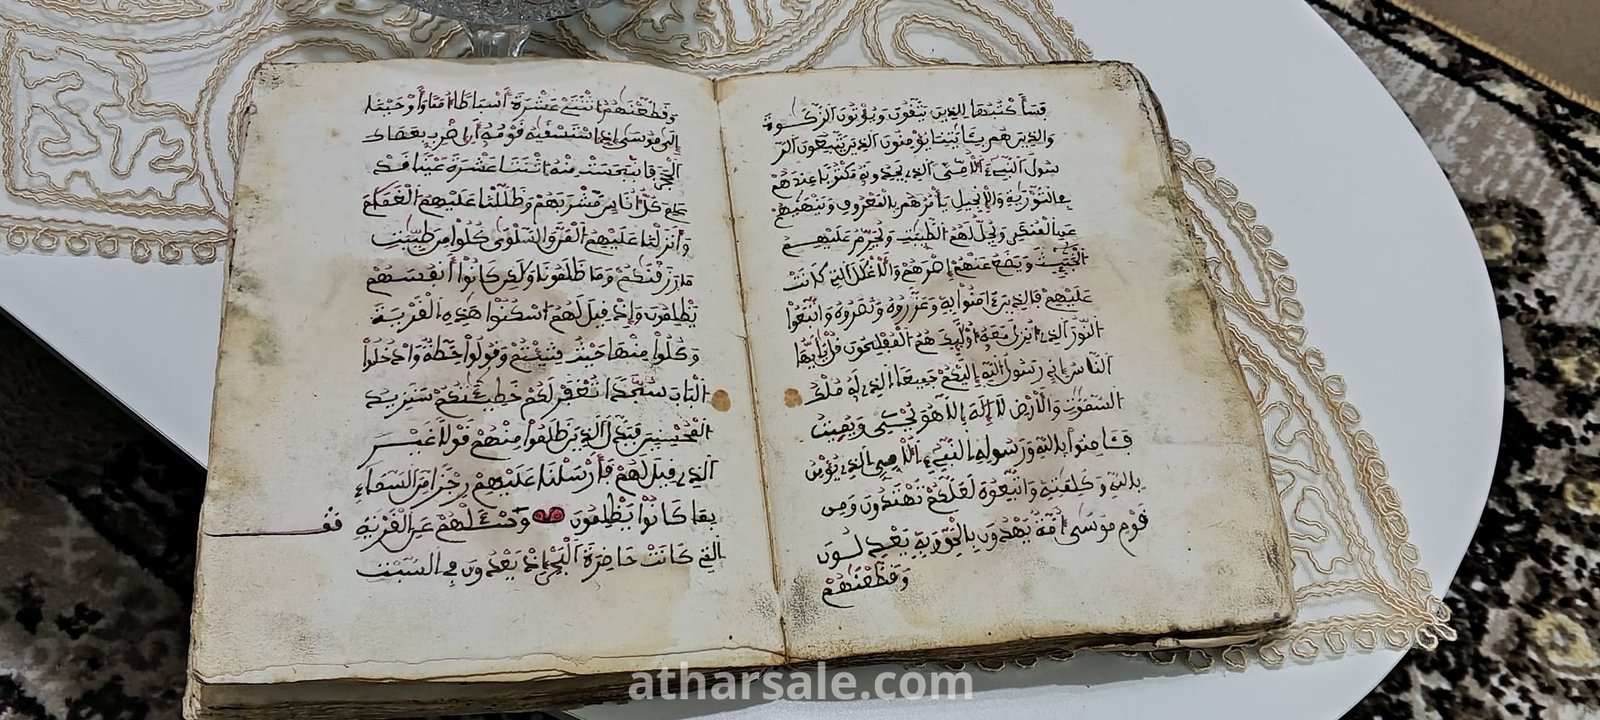 فسأكتبها للذين يتقون ويؤتون الزكوة
والذين هم بـٔايتنا يؤمنون الذين يتبعون الر
سول النبيء الامي الذي يجدونه مكتوبا عندهم
في التورية والانجيل يأمرهم بالمعروف وينهيهم
عن المنكر ويحل لهم الطيبت ويحرم عليهم
الخبيث ويضع عنهم إصرهم والاغلل التي كانت
عليهم فالذين ءامنوا به وعزروه ونصروه واتبعوا
النور الذي أنزل معه أوليك هم المفلحون قل يأيها
الناس إني رسول الله إليكم جميعا الذي له ملك
السموت والأرض لا إله إلا هو يحيي ويميت
فـٔامنوا بالله ورسوله النبيء الأمي الذي يؤمن
بالله وكلمته واتبعوه لعلكم تهتدون ومن
قوم موسى أمة يهدون بالحق وبه يعدلون
وقطعنهم
وقطعنهم اثنتي عشرة أسباطا امما وأوحينا
إلى موسى إذ استسقيه قومه أن اضرب بعصاك
الحجر فانبجست منه اثنتا عشرة عينا قد
علم كل أناس مشربهم وظللنا عليهم الغمم
وأنزلنا عليهم المن والسلوى كلوا من طيبت
ما رزقنكم وما ظلمونا ولكن كانوا أنفسهم
يظلمون وإذ قيل لهم اسكنوا هذه القرية
وكلوا منها حيث شيتم وقولوا حطة وادخلوا
الباب سجدا تغفر لكم خطيـٔتكم سنزيد
المحسنين فبدل الذين ظلموا منهم قولا غير
الذي قيل لهم فأرسلنا عليهم رجزا من السماء
بما كانوا يظلمون وسـٔلهم عن القرية
التي كانت حاضرة البحر إذ يعدون في السبت
athharsale.com